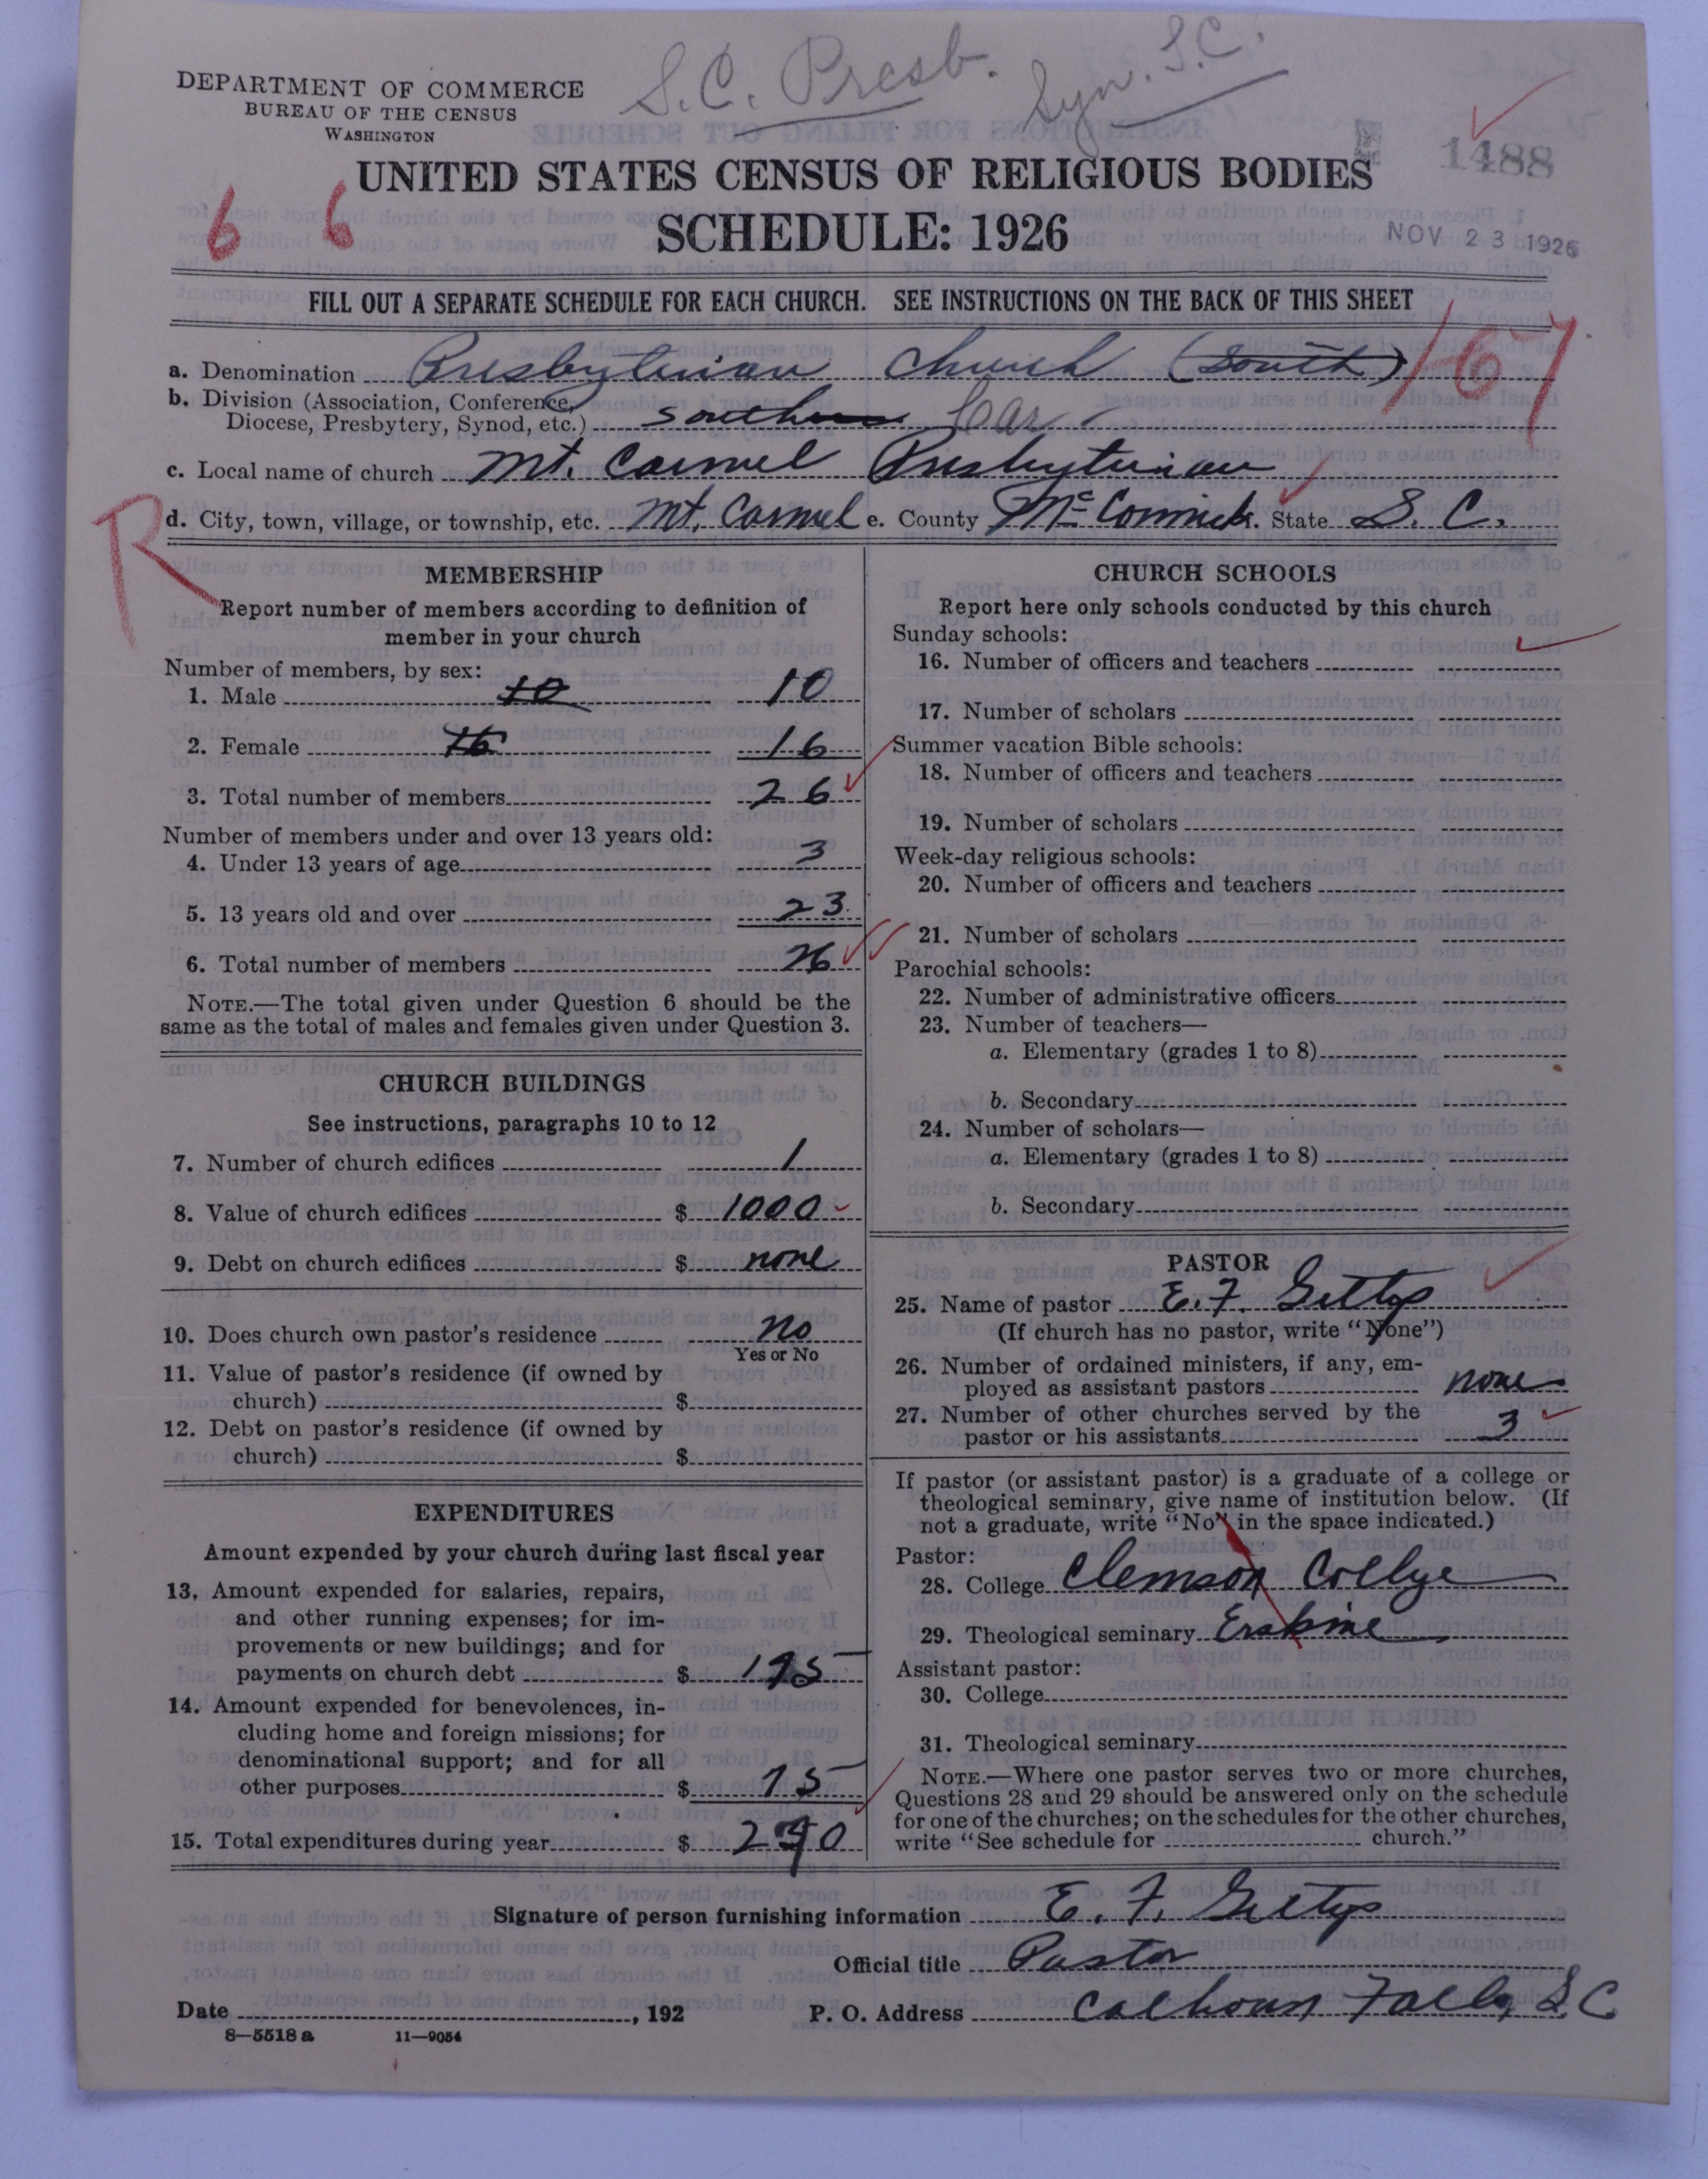 S.C. Presb. Syn. S.C.
DEPARTMENT OF COMMERCE
BUREAU OF THE CENSUS
WASHINGTON
1488
UNITED STATES CENSUS OF RELIGIOUS BODIES
6 6
SCHEDULE: 1926
NOV 23 1926
FILL OUT A SEPARATE SCHEDULE FOR EACH CHURCH. SEE INSTRUCTIONS ON THE BACK OF THIS SHEET
167
a. Denomination Presbyterian Church (South)
b. Division (Association, Conference,
Diocese, Presbytery, Synod, etc.) Southern Car
c. Local name of church Mt. Carmel Presbyterian
d. City, town, village, or township, etc. Mt. Carmel e. County McCormick. State S. C.
R
MEMBERSHIP
Report number of members according to definition of
member in your church
Number of members, by sex:
1. Male 10 10
2. Female 16 16
3. Total number of members 26
Number of members under and over 13 years old:
4. Under 13 years of age 3
5. 13 years old and over 23
6. Total number of members 26
NOTE.—The total given under Question 6 should be the
same as the total of males and females given under Question 3.
CHURCH BUILDINGS
See instructions, paragraphs 10 to 12
7. Number of church edifices 1
8. Value of church edifices $ 1000
9. Debt on church edifices $ none
10. Does church own pastor's residence no
Yes or No
11. Value of pastor's residence (if owned by
church) $
12. Debt on pastor's residence (if owned by
church) $
EXPENDITURES
Amount expended by your church during last fiscal year
13. Amount expended for salaries, repairs,
and other running expenses; for im-
provements or new buildings; and for
payments on church debt $ 195
14. Amount expended for benevolences, in-
cluding home and foreign missions; for
denominational support; and for all
other purposes $ 75
15. Total expenditures during year $
CHURCH SCHOOLS
Report here only schools conducted by this church
Sunday schools:
16. Number of officers and teachers
17. Number of scholars
Summer vacation Bible schools:
18. Number of officers and teachers
19. Number of scholars
Week-day religious schools:
20. Number of officers and teachers
21. Number of scholars
Parochial schools:
22. Number of administrative officers
23. Number of teachers—
a. Elementary (grades 1 to 8)
b. Secondary
24. Number of scholars—
a. Elementary (grades 1 to 8)
b. Secondary
PASTOR
25. Name of pastor E. F. Gettys
(If church has no pastor, write "None")
26. Number of ordained ministers, if any, em-
ployed as assistant pastors none
27. Number of other churches served by the
pastor or his assistants 3
If pastor (or assistant pastor) is a graduate of a college or
theological seminary, give name of institution below. (If
not a graduate, write "No" in the space indicated.)
Pastor:
28. College Clemson College
29. Theological seminary Erskine
Assistant pastor:
30. College
31. Theological seminary
NOTE.—Where one pastor serves two or more churches,
Questions 28 and 29 should be answered only on the schedule
for one of the churches; on the schedules for the other churches,
write "See schedule for church."
Signature of person furnishing information E. F. Gettys
Official title Pastor
Date , 192 P. O. Address Calhoun Falls, S.C
8—5518 a 11—9054